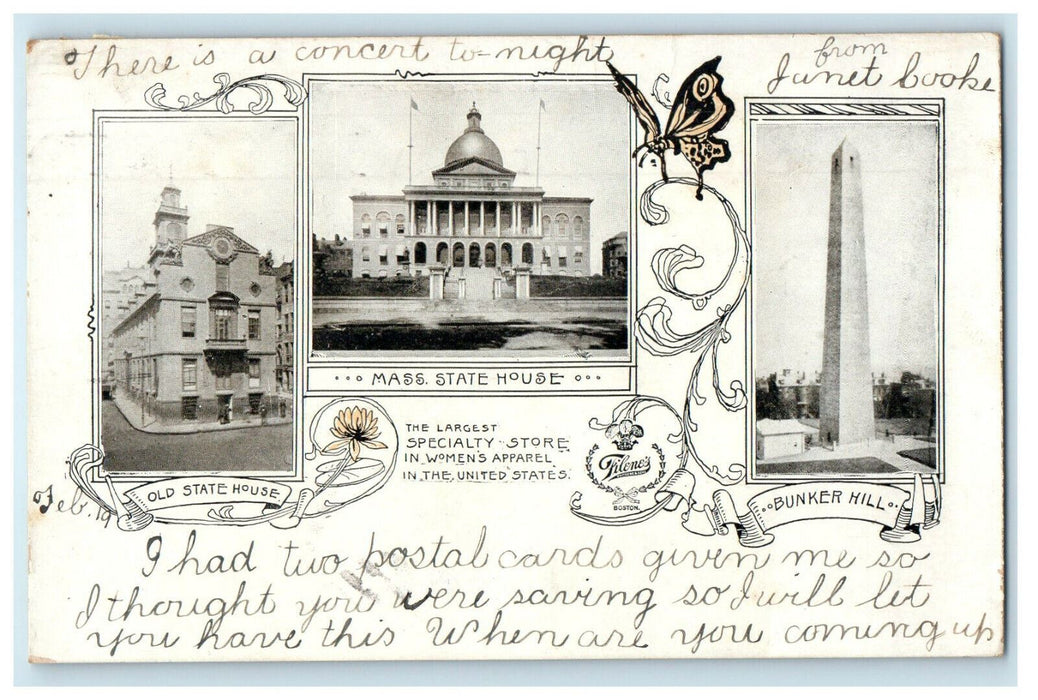 There is a concert to-night
from
Janet Cooke
MASS. STATE HOUSE
THE LARGEST
SPECIALTY STORE
IN WOMEN'S APPAREL
IN THE UNITED STATES.
Filene's
BOSTON.
OLD STATE HOUSE
BUNKER HILL
Feb. 19
I had two postal cards given me so
I thought you were saving so I will let
you have this When are you coming up